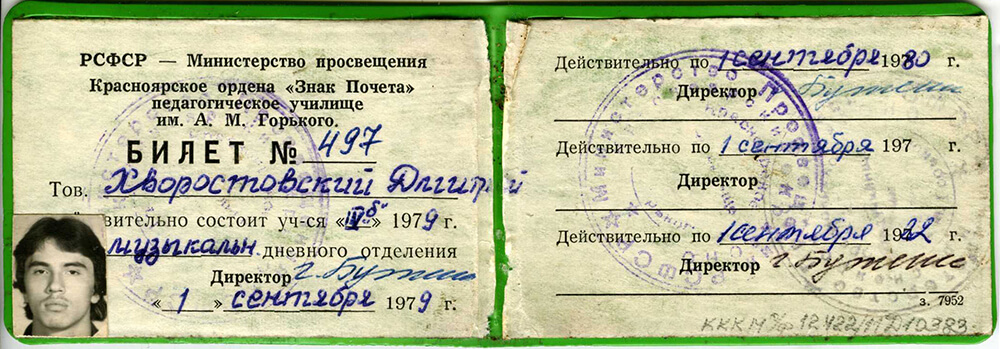 РСФСР — Министерство просвещения
Красноярское ордена «Знак Почета»
педагогическое училище
им. А. М. Горького.
БИЛЕТ № 497
Тов. Хворостовский Дмитрий
вительно состоит уч-ся «IVб» 1979 г.
музыкальн. дневного отделения
Директор
«1» сентября 1979 г.
Действительно по 1 сентября 1980 г.
Директор
Действительно по 1 сентября 197 г.
Директор
Действительно по 1 сентября 1982 г.
Директор
з. 7952